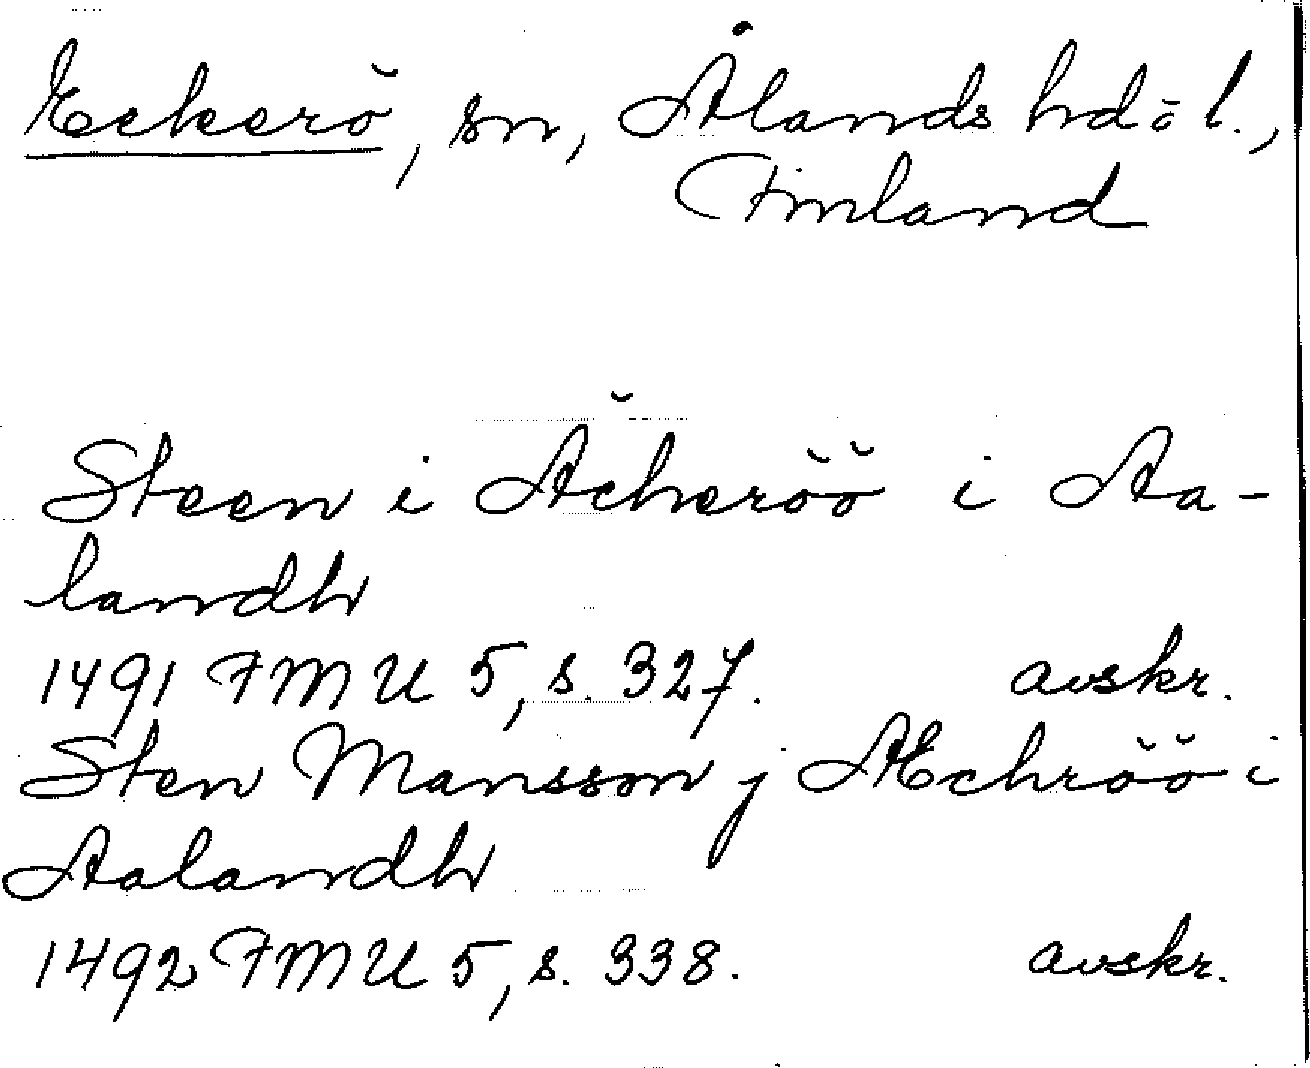 Eckerö, sn, Ålands hd o l.,
Finland
Steen i Ächeröö i Aa-
landh
1491 FMU 5, s. 327. avskr.
Sten Mansson j Æchröö i
Aalandh
1492 FMU 5, s. 338. avskr.